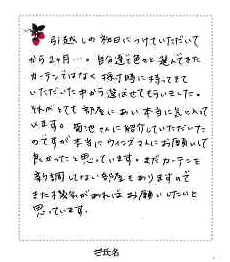 引越しの初日につけていただいて
から2ヶ月…。自分達で色々と選んできた
カーテンではなく採寸時に持ってきて
いただいた中から選ばせてもらいました。
それがとても部屋にあい本当に気に入って
います。菊池さんに紹介していただいた
のですが本当にウィンズさんにお願いして
良かったと思っています。まだカーテンを
新調してない部屋もありますので
また機会があればお願いしたいと
思っています。
ご氏名